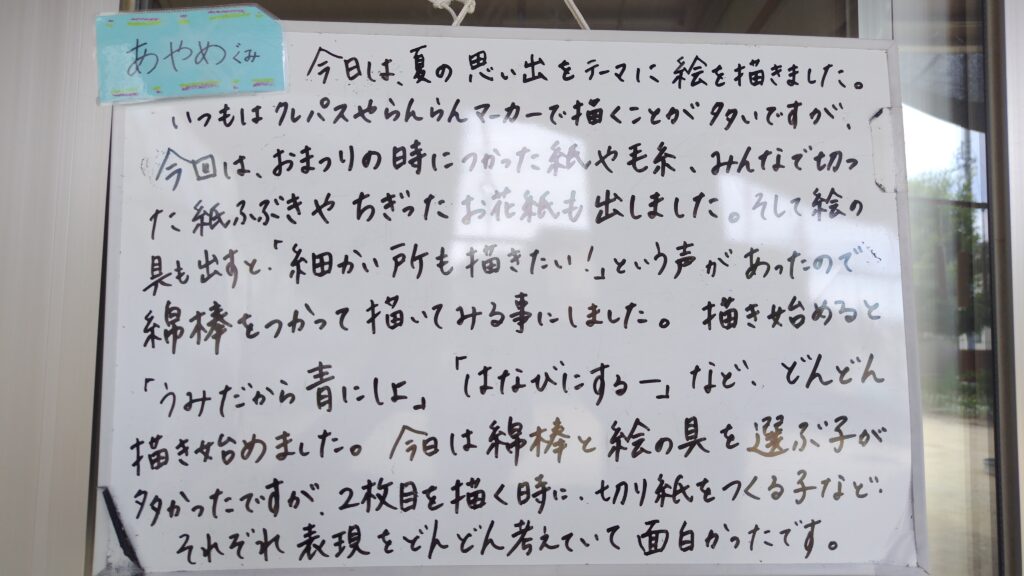 あやめくみ
今日は、夏の思い出をテーマに絵を描きました。
いつもはクレパスやらんらんマーカーで描くことが多いですが、
今回は、おまつりの時につかった紙や毛糸、みんなで切っ
た紙ふぶきやちぎったお花紙も出しました。そして絵の
具も出すと、「細かい所も描きたい!」という声があったので
綿棒をつかって描いてみる事にしました。描き始めると
「うみだから青にしよ」「はなびにするー」など、どんどん
描き始めました。今日は綿棒と絵の具を選ぶ子が
多かったですが、2枚目を描く時に、切り紙をつくる子など、
それぞれ表現をどんどん考えていて面白かったです。